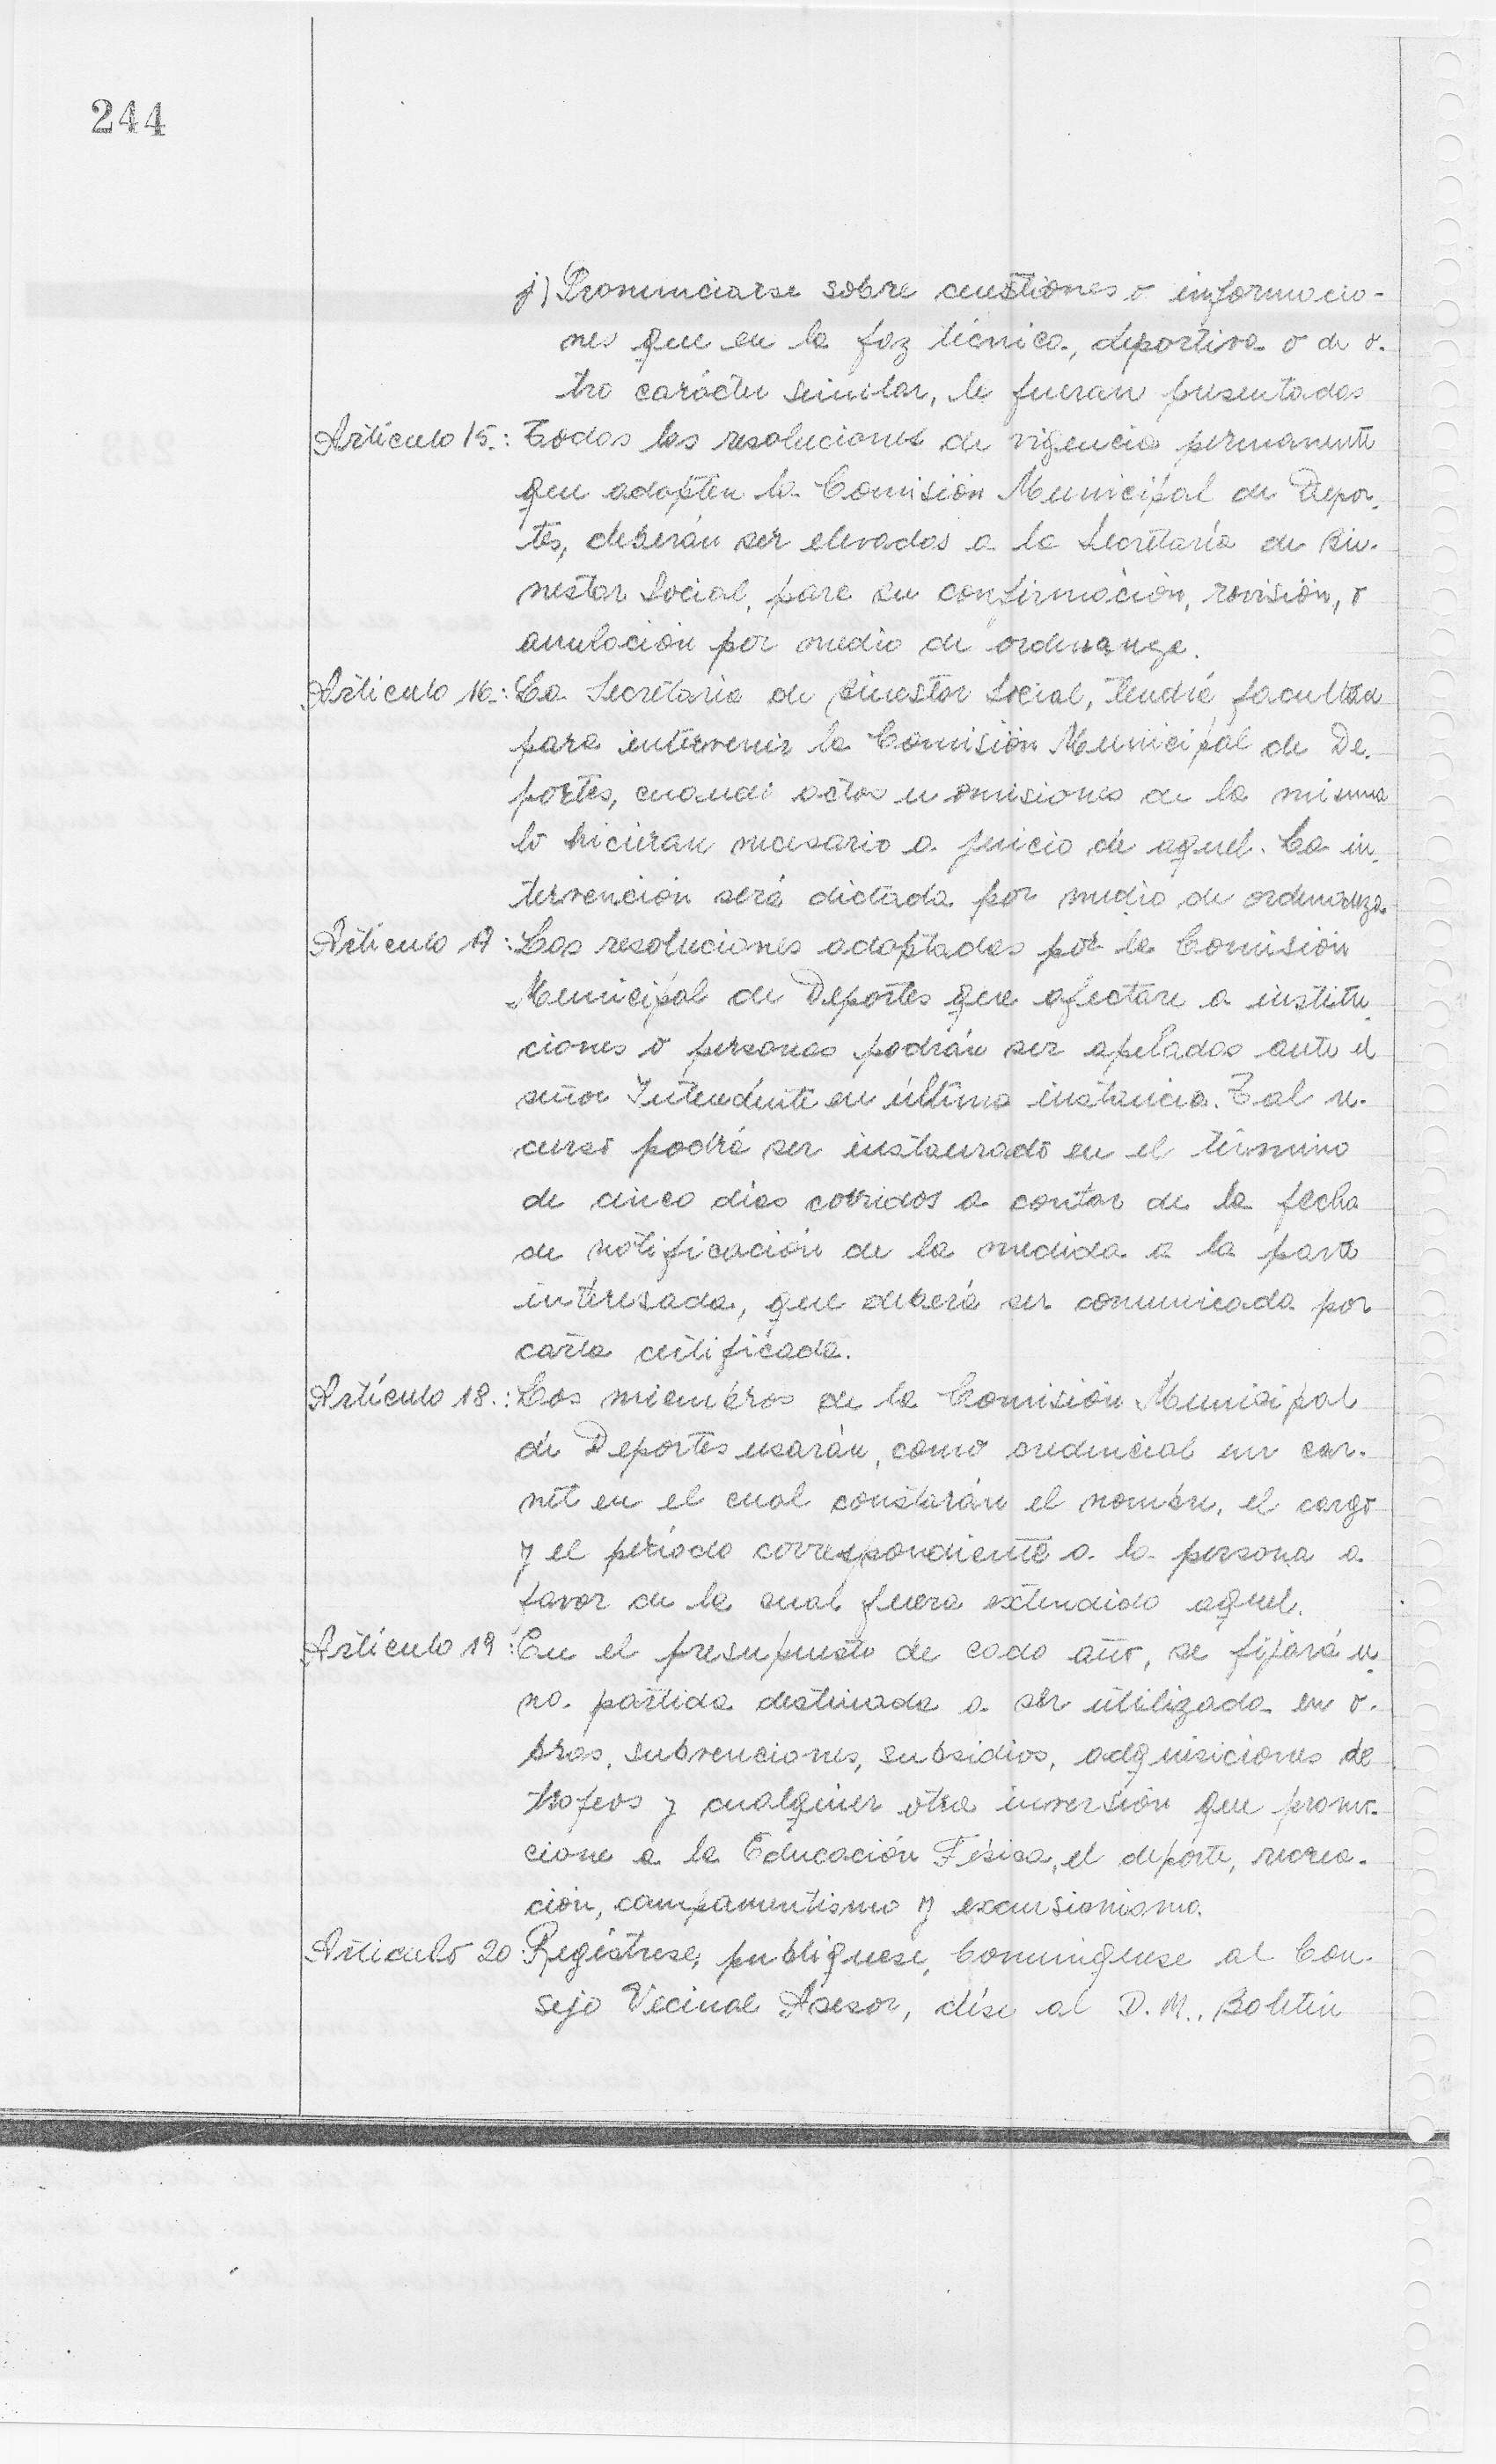 244
j) Pronunciarse sobre cuestiones o informacio-
nes que en la faz técnica, deportiva o de o-
tro carácter similar, le fueran presentadas
Artículo 15.: Todas las resoluciones de vigencia permanente
que adopten la Comisión Municipal de Depor-
tes, deberán ser elevadas a la Secretaría de Bie-
nestar Social, para su confirmación, revisión, o
anulación por medio de ordenanza.
Artículo 16.: La Secretaria de Bienestar Social, tendrá facultad
para intervenir la Comisión Municipal de De-
portes, cuando actos u omisiones de la misma
lo hicieran necesario a juicio de aquel. La in-
tervención será dictada por medio de ordenanza.
Artículo 17: Las resoluciones adoptadas por la Comisión
Municipal de Deportes que afectare a institu-
ciones o personas podrán ser apeladas ante el
señor Intendente en última instancia. Tal re-
curso podrá ser instaurado en el término
de cinco días corridos a contar de la fecha
de notificación de la medida a la parte
interesada, que deberá ser comunicada por
carta certificada.
Artículo 18.: Los miembros de la Comisión Municipal
de Deportes usarán, como credencial un car-
net en el cual constarán el nombre, el cargo
y el período correspondiente a la persona a
favor de la cual fuera extendido aquel.
Artículo 19: En el presupuesto de cada año, se fijará u-
na partida destinada a ser utilizada en o-
bras, subvenciones, subsidios, adquisiciones de
trofeos y cualquier otra inversión que promo-
cione a la Educación Física, el deporte, recrea-
ción, campamentismo y excursionismo.
Artículo 20: Regístrese, publíquese, Comuníquese al Con-
sejo Vecinal Asesor, dése al D.M., Boletín